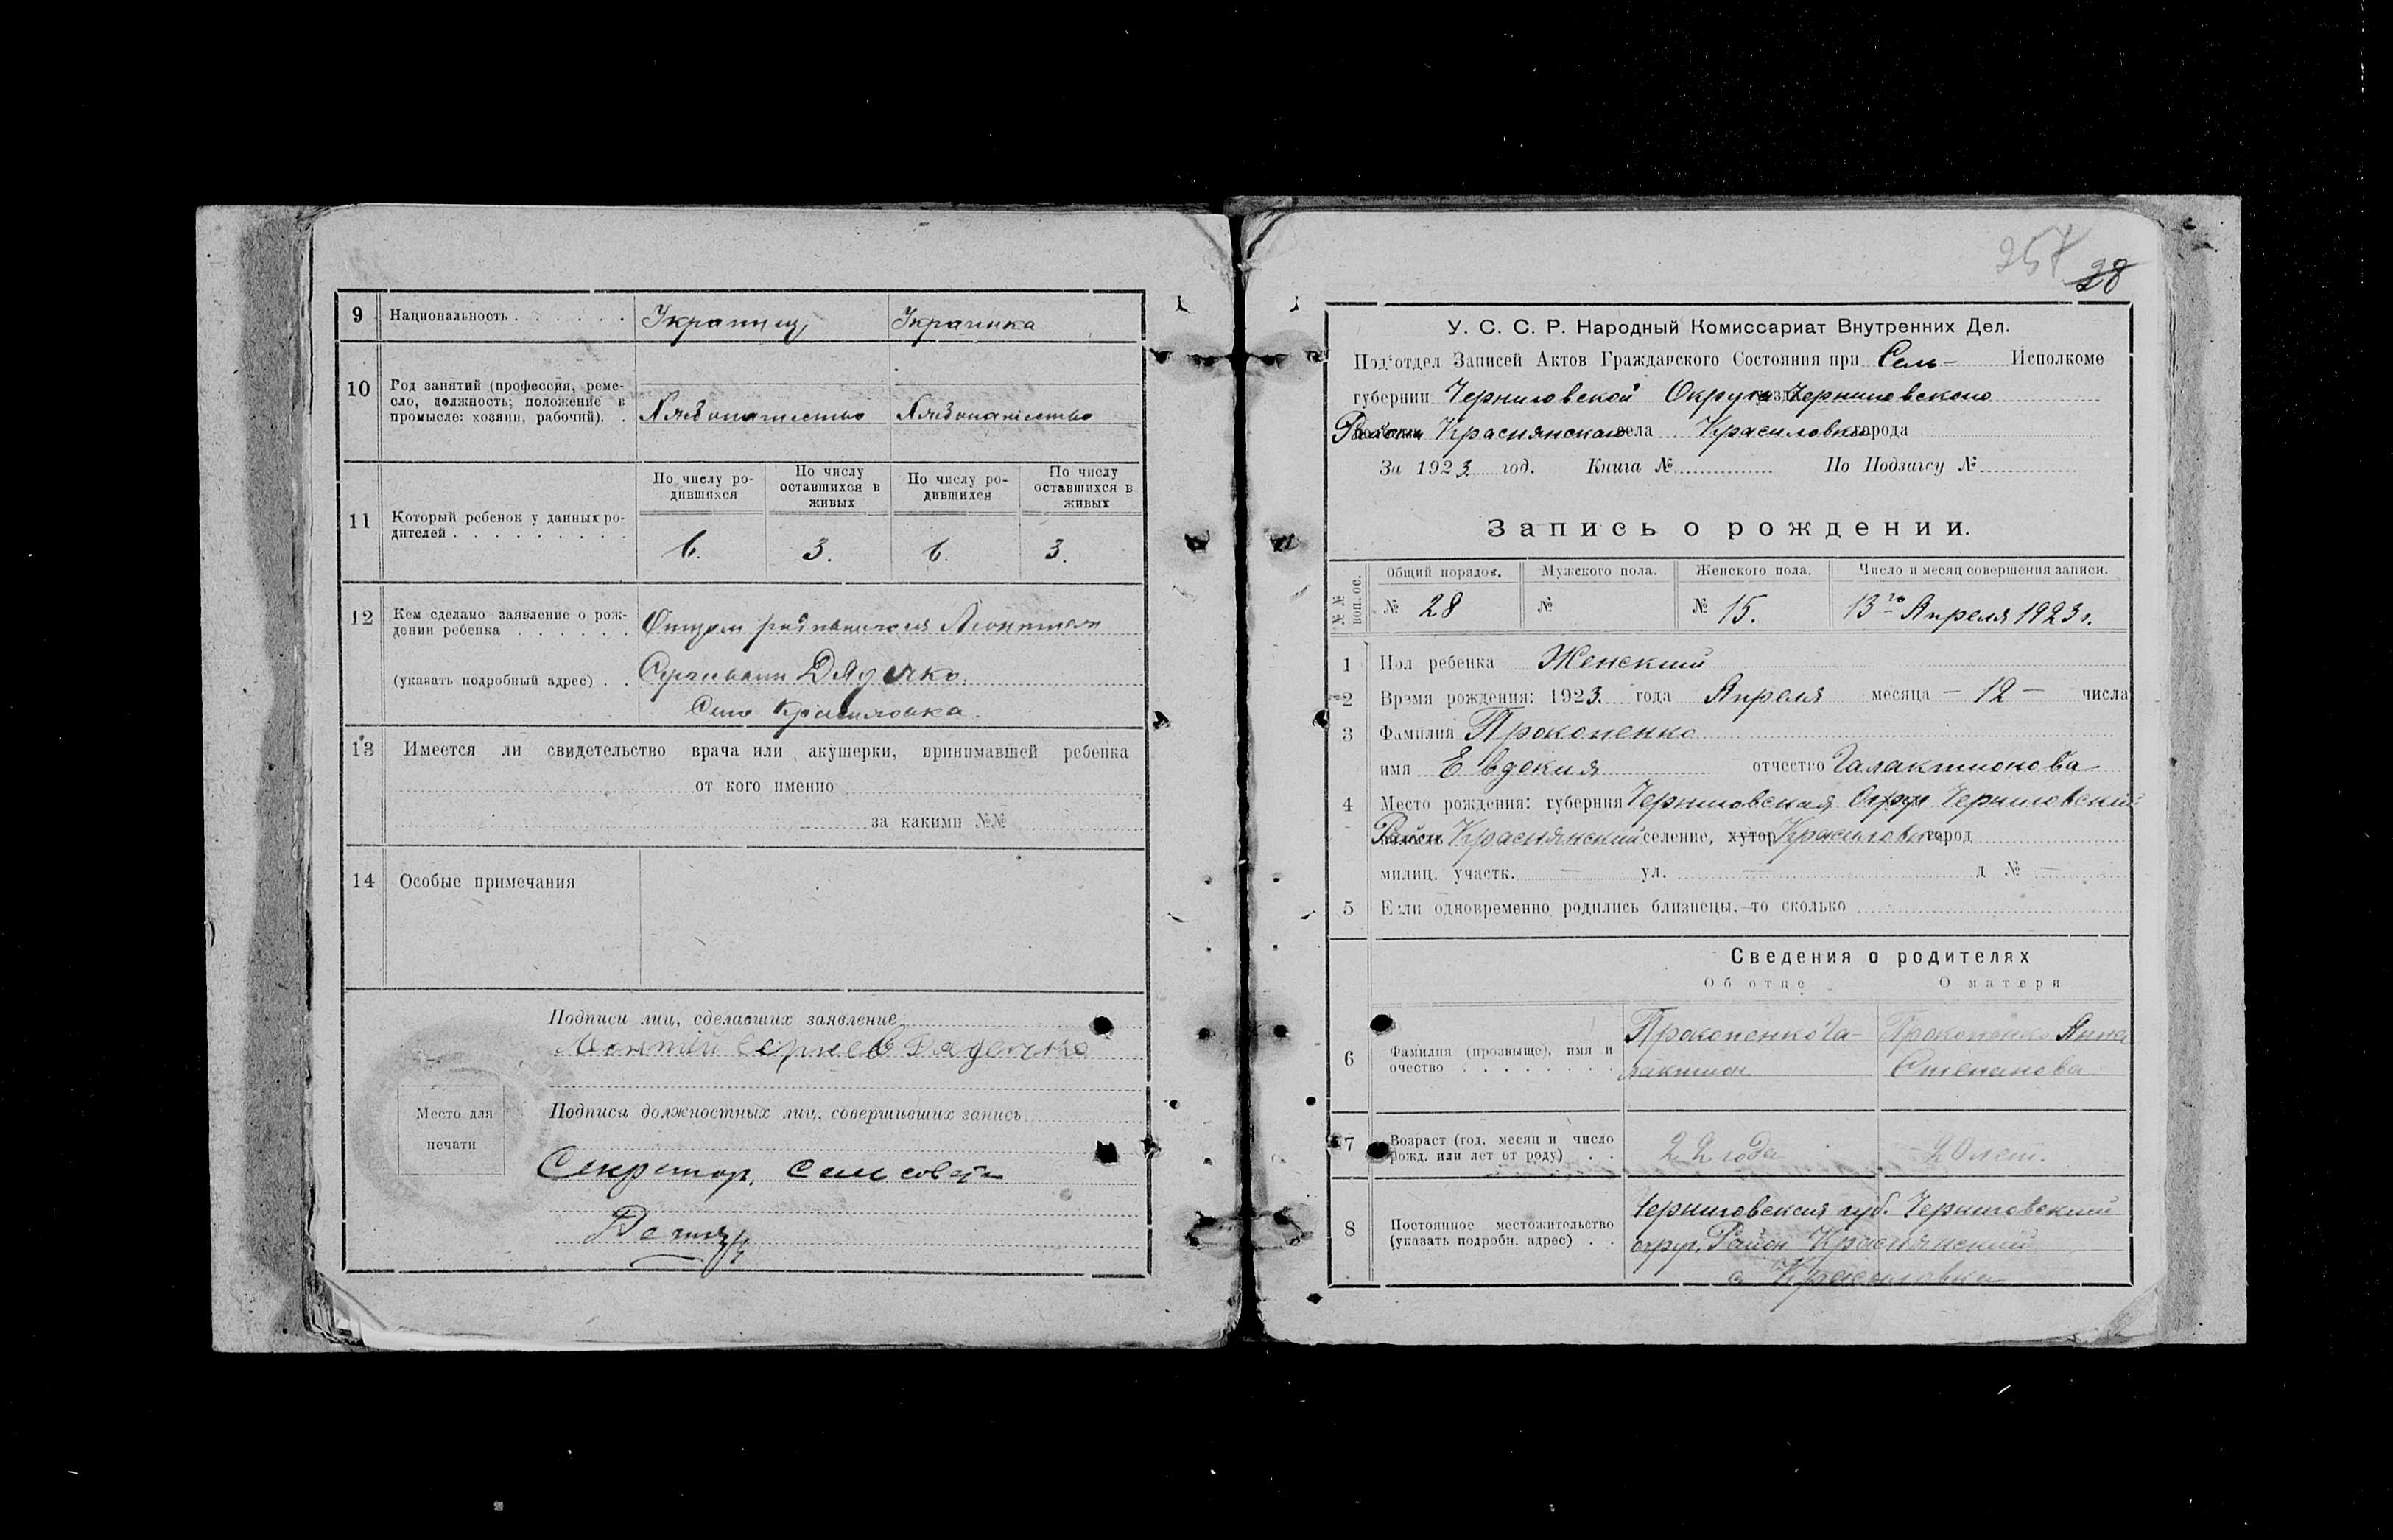 9 Национальность . . . . . . Украинец Украинка
10 Род занятий (профессия, ремесло, должность; положение в промысле: хозяин, рабочий). . Хлебопашество Хлебопашество
По числу родившихся По числу оставшихся в живых По числу родившихся По числу оставшихся в живых
11 Который ребенок у данных родителей . . . . . . . . .
6. 3. 6. 3.
12 Кем сделано заявление о рождении ребенка . . . . . . Отцом
(указать подробный адрес) . . Дядечко.
Село Красиловка.
13 Имеется ли свидетельство врача или акушерки, принимавшей ребенка
от кого именно
за какими №№
14 Особые примечания
Подписи лиц, сделавших заявление
Леонтий Сергиев Дядечко
Место для печати
Подписи должностных лиц, совершивших запись
Секретар, сельсовета
257 28
У. С. С. Р. Народный Комиссариат Внутренних Дел.
Под'отдел Записей Актов Гражданского Состояния при Сель- Исполкоме
губернии Черниговской Округа Черниговского
Района Краснянского села Красиловки города
За 1923 год. Книга № По Подзагсу №
Запись о рождении.
№ № воп. ос. Общий порядок. Мужского пола. Женского пола. Число и месяц совершения записи.
№ 28 № № 15. 13го Апреля 1923 г.
1 Пол ребенка Женский
2 Время рождения: 1923. года Апреля месяца — 12 — числа
3 Фамилия Прокопенко
имя Евдокия отчество Галактионова
4 Место рождения: губерния Черниговская, Округ Черниговский
Район Краснянский селение, хутор Красиловка город
милиц. участк. — ул. — д № —
5 Если одновременно родились близнецы, то сколько
Сведения о родителях
Об отце О матери
6 Фамилия (прозвыще), имя и очество . . . . . . . . Прокопенко Га- Прокопенко Анна
лактион Степанова
7 Возраст (год, месяц и число рожд. или лет от роду) . . 22 года 20 лет.
8 Постоянное местожительство (указать подробн. адрес) . . Черниговская губ. Черниговский
округ, Район Краснянский
с Красиловка